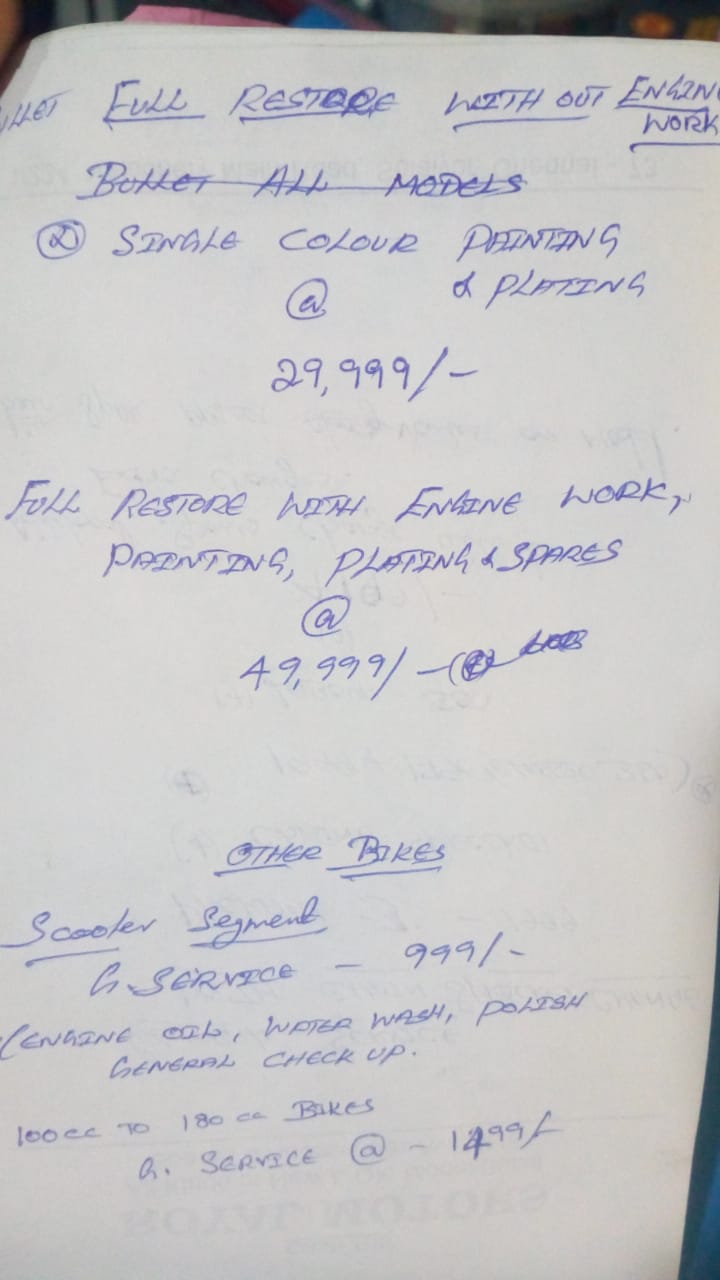 FULL RESTORE WITH OUT ENGINE
WORK
BULLET ALL MODELS
② SINGLE COLOUR PAINTING
& PLATING
@
29,999/-
FULL RESTORE WITH ENGINE WORK,
PAINTING, PLATING & SPARES
@
49,999/-
OTHER BIKES
Scooter Segment
G. SERVICE - 999/-
(ENGINE OIL, WATER WASH, POLISH
GENERAL CHECK UP.
100cc TO 180 cc BIKES
G. SERVICE @ - 1499/-
ROYAL MOTORS